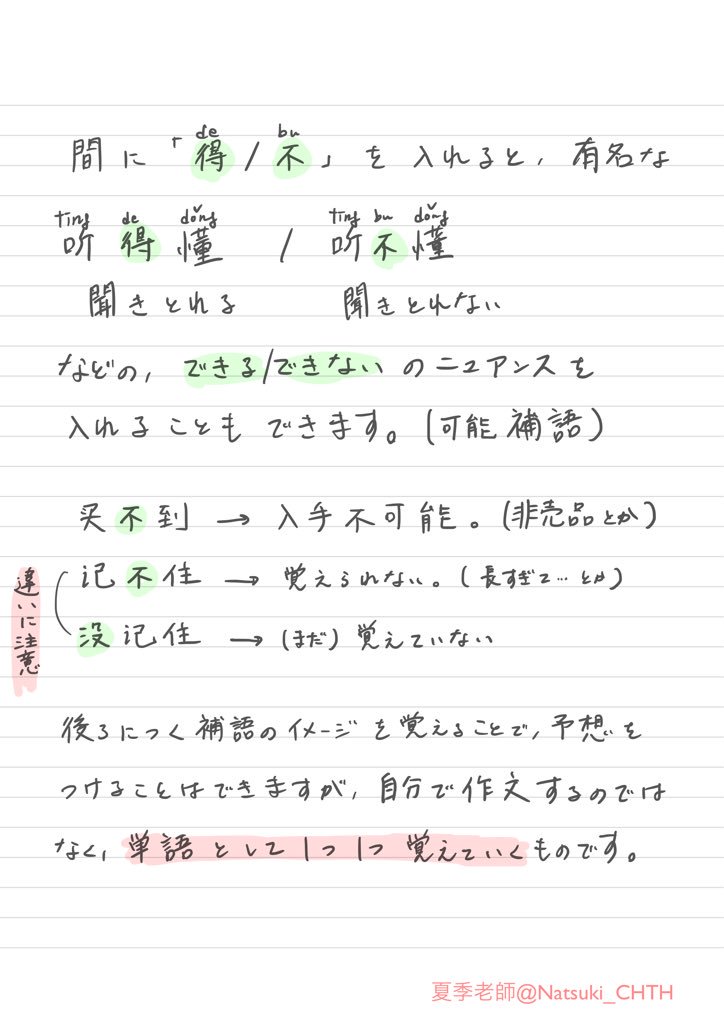 de bu
間に「得/不」を入れると、有名な
ting de dǒng ting bu dǒng
听得懂 / 听不懂
聞きとれる 聞きとれない
などの、できる/できないのニュアンスを
入れることもできます。(可能補語)
买不到 → 入手不可能。(非売品とか)
记不住 → 覚えられない。(長すぎて…とか)
没记住 → (まだ)覚えていない
違いに注意
後ろにつく補語のイメージを覚えることで、予想を
つけることはできますが、自分で作文するのでは
なく、単語として1つ1つ覚えていくものです。
夏季老師@Natsuki_CHTH